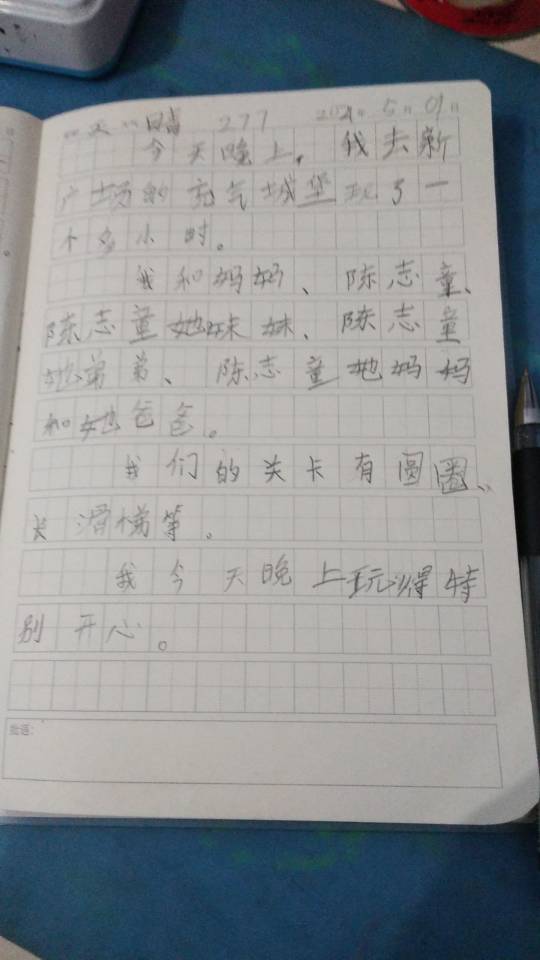 天 晴 277 5 01
今天晚上，我去新
广场的充气城堡玩了一
个多小时。
我和妈妈、陈志童、
陈志童她妹妹、陈志童
她弟弟、陈志童她妈妈
和她爸爸。
我们的关卡有圆圈、
长滑梯等。
我今天晚上玩得特
别开心。
批语: